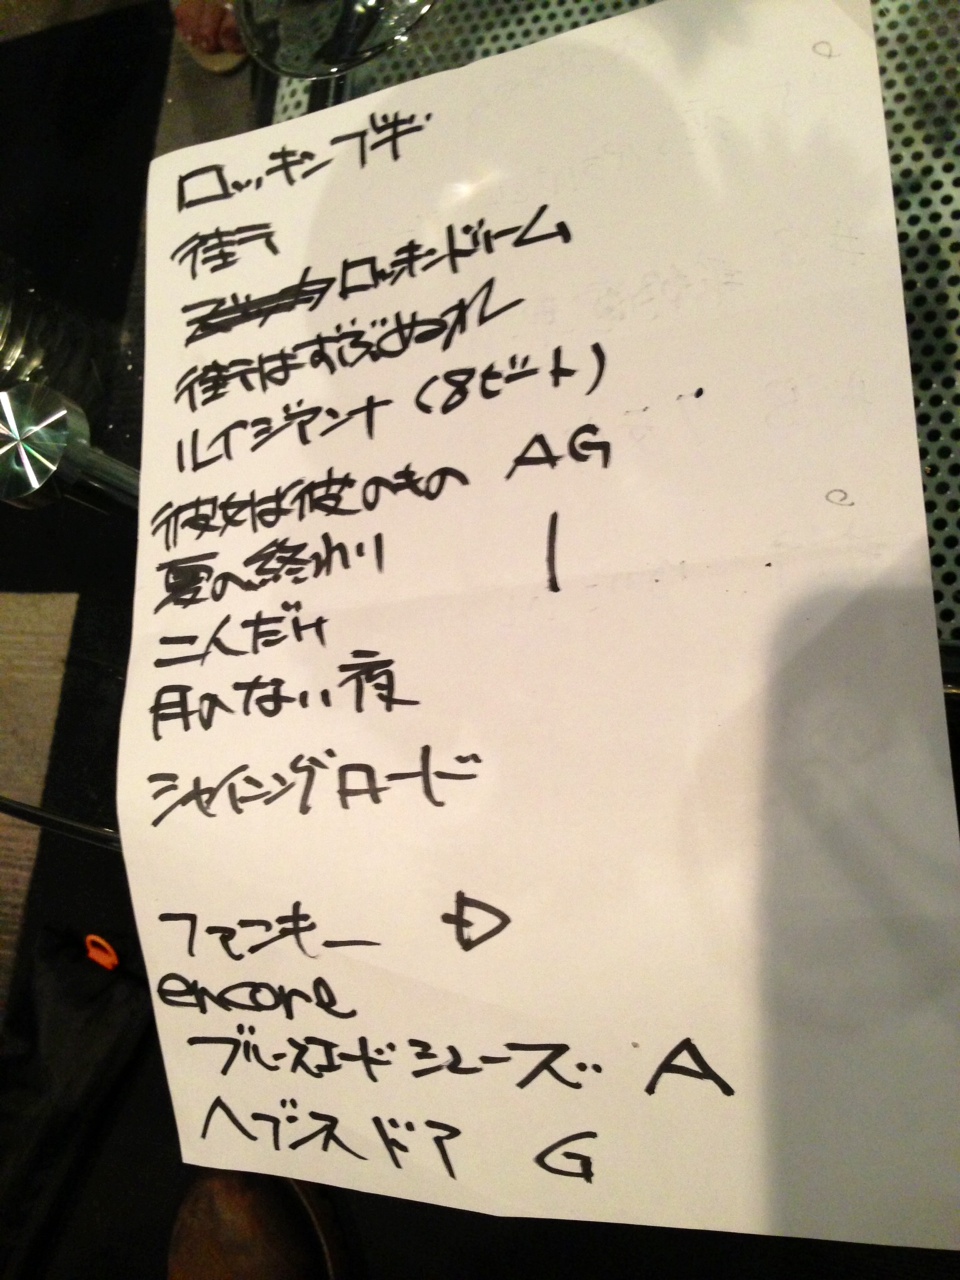 ロッキンブギ
街テ
ロッキンドリーム
街テはずぶぬれ
ルイジアンナ (8ビート)
彼女は彼のもの AG
夏の終わり |
二人だけ
月のない夜
シャイニングロード
ファンキー D
encore
ブルースエードシューズ A
ヘブンスドア G